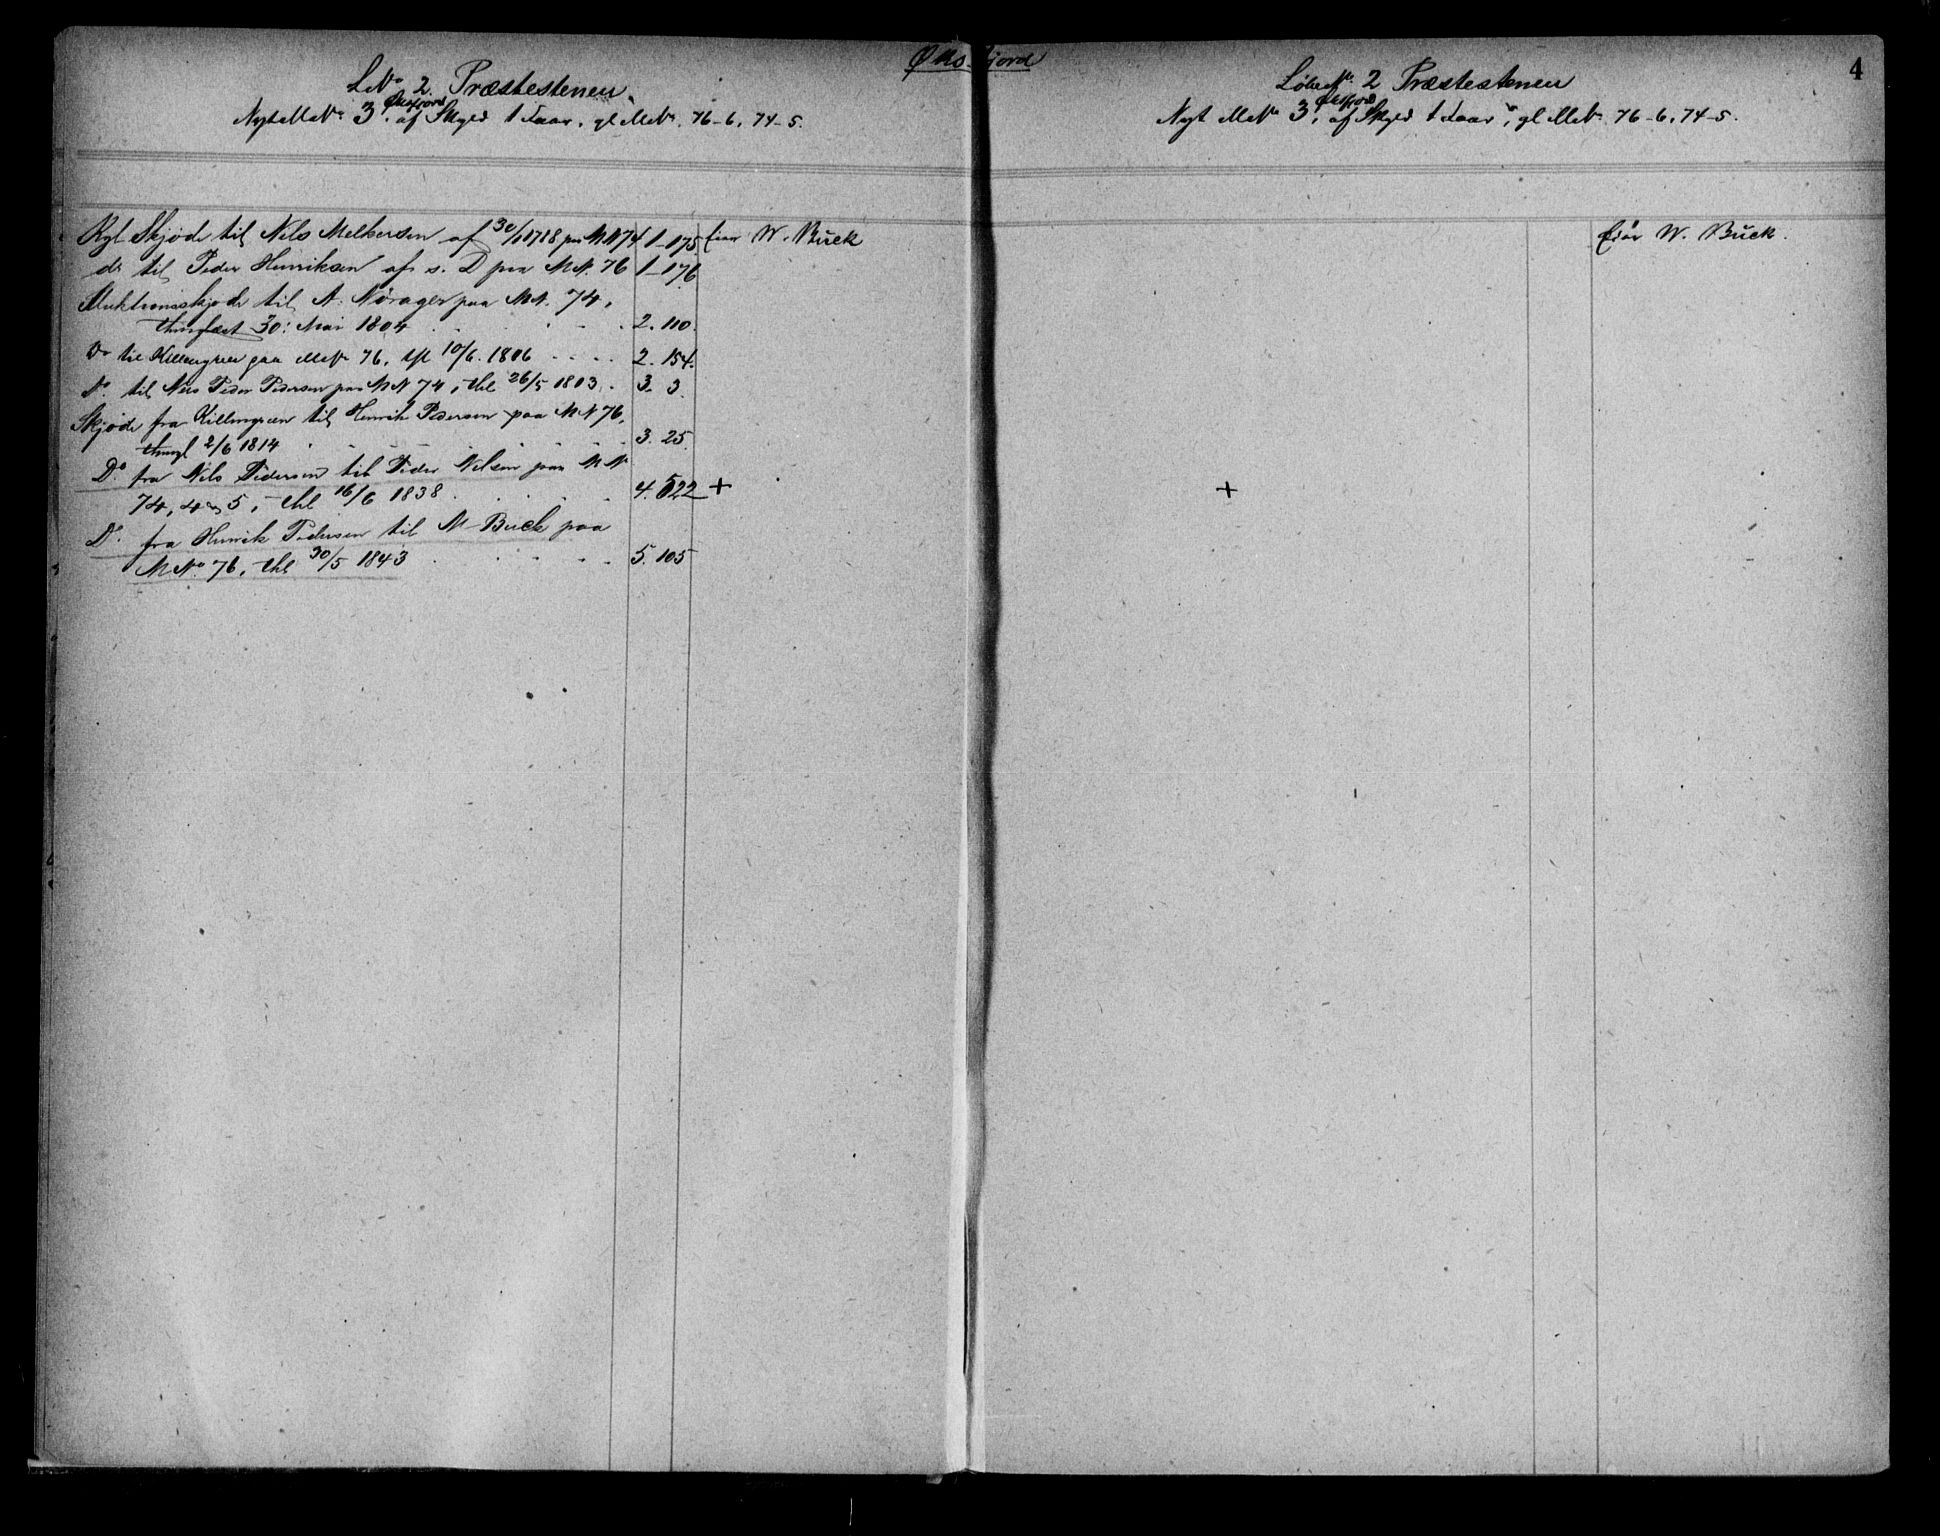 Øksfjord
4
L.No 2. Præstestenen.
Nyt M.No 3, Øksfjord af Skyld 1 Faar, gl M.No. 76-6, 74-5.
Kgl Skjøde til Nils Melkersen af 30/1 1788 paa M N 74 1-175. Eier W. Buck
do til Peder Henriksen af s. D paa M N. 76 1-176
Auktionsskjøde til A. Nørager paa M N. 74,
thinglæst 30: Mai 1804 2. 110.
Do til Killengreen paa M No 76, thl 10/6. 1806 2. 154.
Do. til Nils Peder Pedersen paa M N 74, thl 26/5 1813. 3. 3.
Skjøde fra Killengreen til Henrik Pedersen paa M N 76,
thingl 2/6 1814 3. 25
Do. fra Nils Pedersen til Peder Nilsen paa M No
74, 4 og 5, thl 16/6 1838. 4. 522 +
Do. fra Henrik Pedersen til M Buck paa
M No. 76, thl 30/5 1843 5. 105
Løbe No. 2 Præstestenen
Nyt M No 3, Øksfjord af Skyld 1 Faar, gl M No. 76-6, 74-5.
Eiør W. Buck.
+